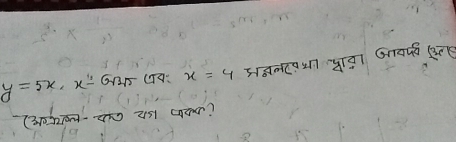 y = 5x, x- অক্ষ এবং x = 4 সরলরেখা দ্বারা আবদ্ধ
ক্ষেত্রফল কত বর্গ একক?